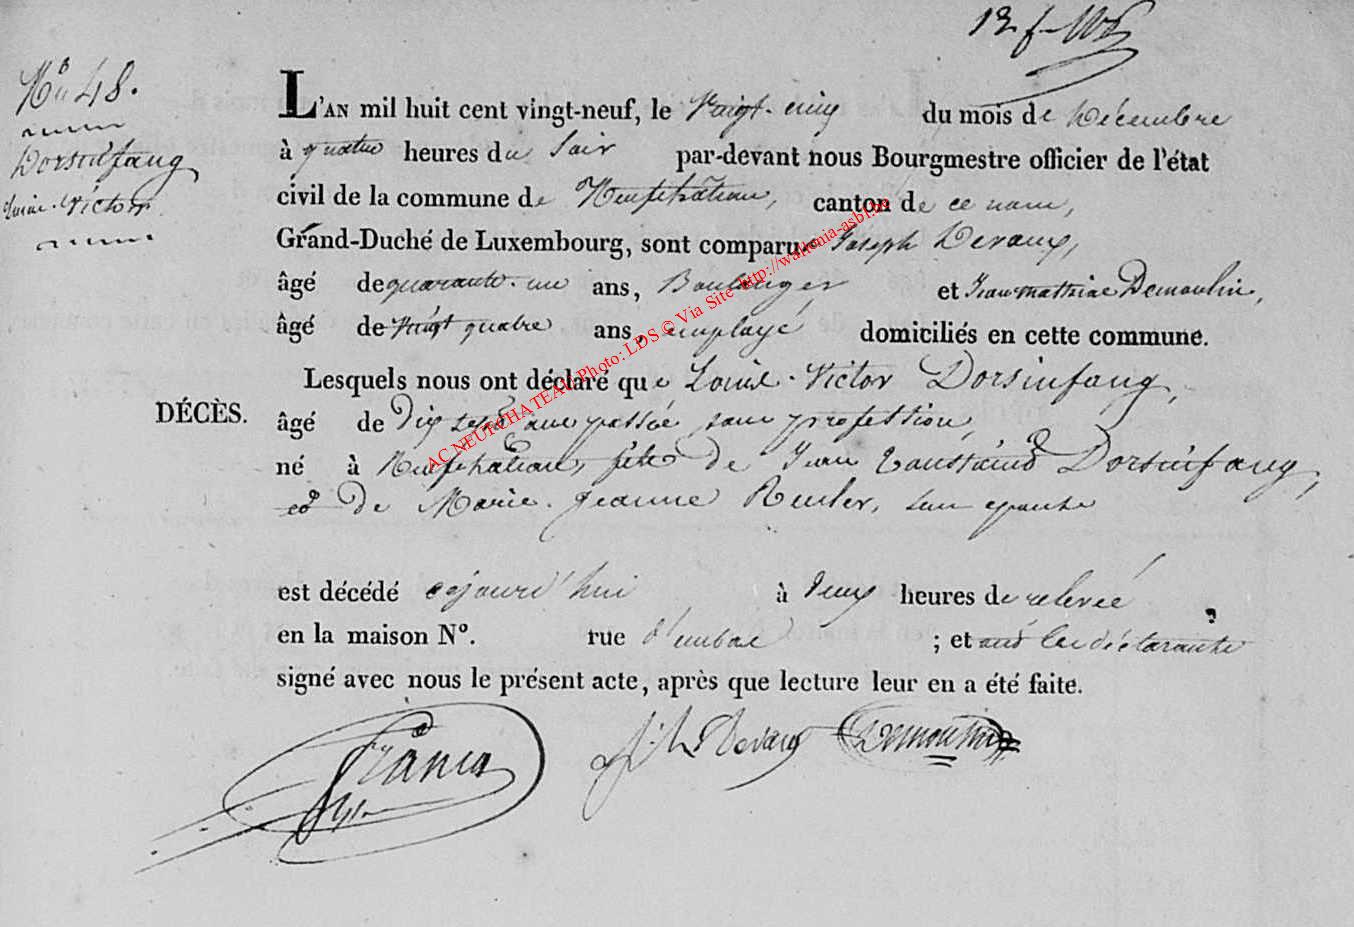 No 48.
Dorsinfang
Louis-Victor
L'AN mil huit cent vingt-neuf, le Vingt-cinq du mois de Décembre
à quatre heures du Soir par-devant nous Bourgmestre officier de l'état
civil de la commune de Neufchâteau, canton de ce nom,
Grand-Duché de Luxembourg, sont comparus Joseph Devaux,
âgé de quarante-un ans, Boulanger et Jean mathias Demoulin,
âgé de Vingt quatre ans, employé domiciliés en cette commune.
Lesquels nous ont déclaré que Louis-Victor Dorsinfang,
DÉCÈS.
âgé de Dix sept ans passés sans profession,
né à Neufchâteau, fils de Jean Toussaint Dorsinfang,
et de Marie-jeanne Reuler, son épouse
est décédé aujourd'hui à Deux heures de relevée
en la maison N°. rue ; et ont les déclarants
signé avec nous le présent acte, après que lecture leur en a été faite.
Devaux Demoulin
AC NEUFCHATEAU Photo: LDS © Via Site http://wallonia-asbl.be